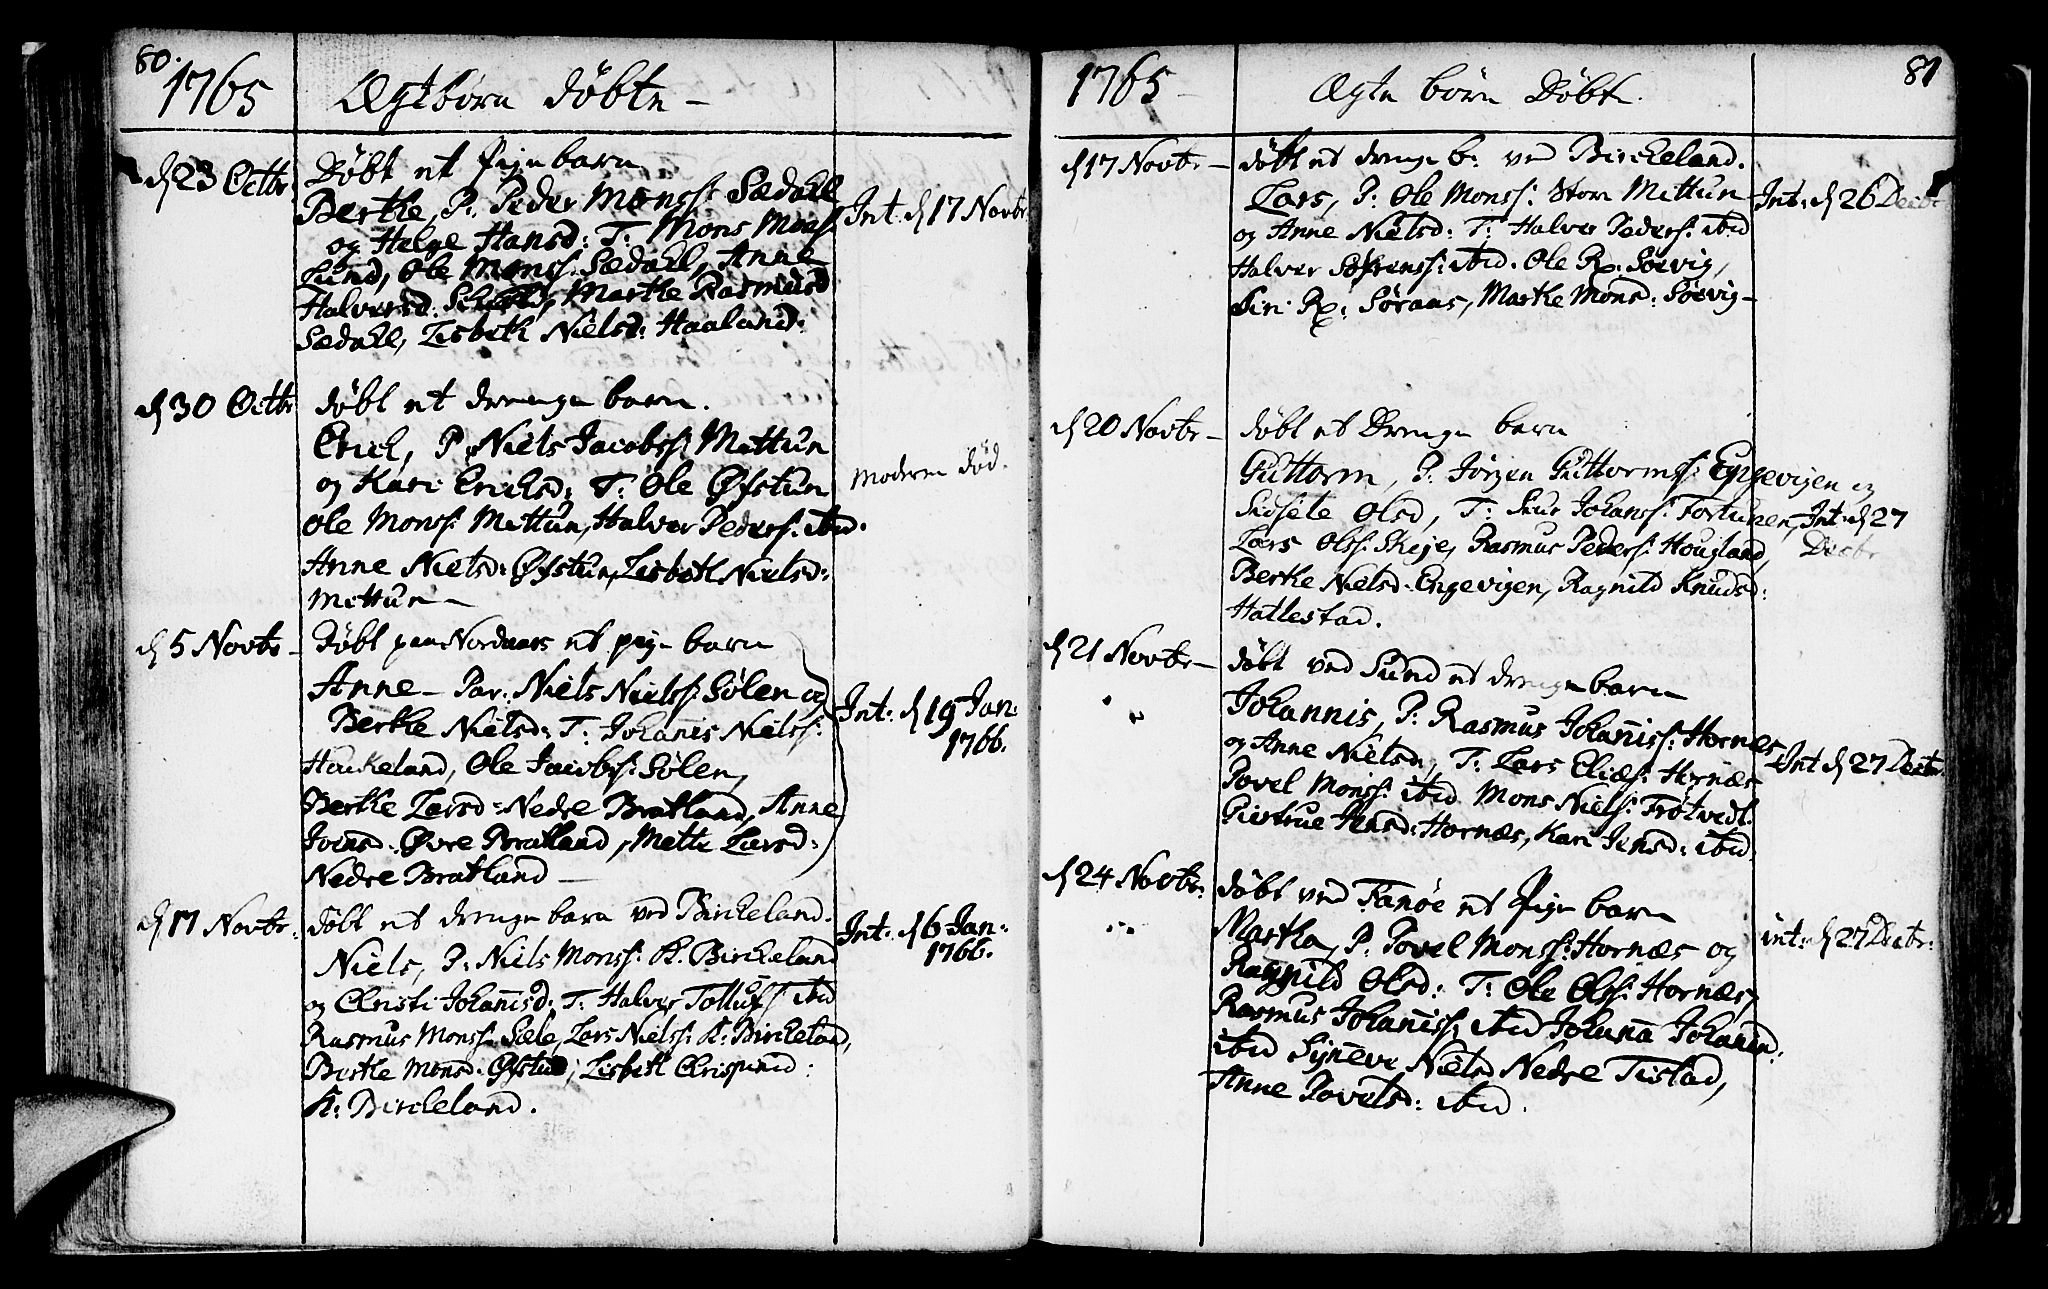 80.
1765
Ægtbørn døbte -
d 23 Octbr
Døbt et Pige barn
Berthe, P: Peder Monss: Sædahl
og Helge Hansd: T: Mons Monss:
Lund, Ole Monss: Sædahl, Anne
Halversd: Marthe Rasmusd
Sædahl, Lisbeth Nielsd: Haaland:
Int. d 17 Novbr
d 30 Octbr
døbt et drenge barn.
Erich, P: Niels Jacobss: Mettun
og Kari Ericksd: T: Ole Øfstun
Ole Monss: Mettun, Halver Pederss: ibid:
Anne Nielsd: Øfstun, Lisbeth Nielsd:
Mettun -
Moderen død.
d 5 Novbr -
Døbt paa Nordaas et pige barn
Anne - Par: Niels Nielss: Sølen og
Berthe Nielsd: T: Johanis Nielss:
Houkeland, Ole Jacobss: Sølen,
Berthe Larsd: Nedre Bratland, Anne
Joensd. Øvre Bratland, Mette Larsd:
Nedre Bratland -
Int: d 19 Jan:
1766.
d 17 Novbr:
døbt et drenge barn ved Birckeland.
Niels, P: Niels Monss: K. Birckeland
og Christi Johanisd: T: Halver Tollufs ibid
Rasmus Monss: Sæle, Lars Nielss: K: Birckeland,
Berthe Monsd: Øfstud, Lisbeth Crispinid:
K: Birckeland.
Int: d 6 Jan:
1766.
81
1765 -
Ægte børn Døbte.
d 17 Novbr -
døbt et drenge b: ved Birckeland.
Lars, P: Ole Monss: Store Mettun
og Anne Nielsd: T: Halver Pederss: ibid
Halver Søfrenss: ibid. Ole Rx. Sørvig,
Siri Rx: Søraas, Marthe Monsd: Sørvig -
Int: d 26 Decbr
d 20 Novbr -
døbt et Drenge barn
Guttorm, P. Jørgen Guttormss: Engevigen og
Sidsele Olsd, T: Siur Johanss: Fortunen,
Lars Olss: Skeje, Rasmus Pederss: Hougland,
Berthe Nielsd: Engevigen, Ragnild Knudsd:
Hatlestad.
Int: d 27
Decbr
d 21 Novbr -
døbt ved Sund et drenge barn
Johannis, P: Rasmus Johaniss: Hornæs
og Anne Nielsd, T: Lars Eliæs: Hornæs
Povel Monss: ibid Mons Nielss: Trotvedt.
Giertrue Jensd: Hornæs, Kari Jensd: ibid.
Int d 27 Decbr
d 24 Novbr:
døbt ved Fanøe et Pige barn
Martha, P. Povel Monss: Hornæs og
Ragnild Olsd: T: Ole Olss: Hornæs,
Rasmus Johaniss: ibid Johana Johanisd:
ibid Synneve Nielsd Nedre Titlestad,
Anne Povelsd: ibid.
int: d 27 Decbr: